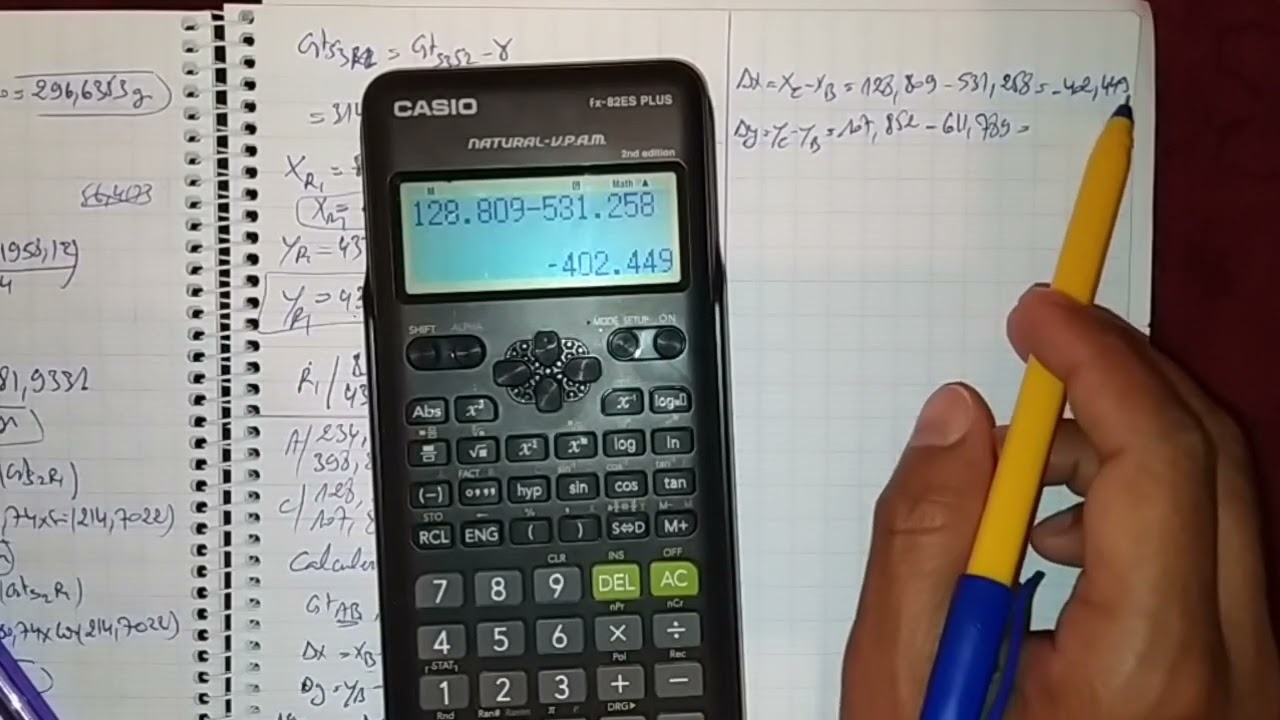 =296,6353gr
56,4173
1958,12)
4
81,9331
(Gts2R1)
,74xsin(214,7022)
(Gts2R1)
50,74xcos(214,7022)
= Gts3s2-γ
=314
XR1=
XR1=
YR1=43
YR1=43
R1/8
43
A/234,
398,8
C/128,
107,8
Calculer
GtAB,
Δx=XB-
Dy=yB-
CASIO
fx-82ES PLUS
NATURAL-V.P.A.M.
2nd edition
M D Math ▲
128.809-531.258
-402.449
SHIFT ALPHA MODE SETUP ON
Abs x³ x⁻¹ log
√ x² log ln
FACT sin⁻¹ cos⁻¹ tan⁻¹
(−) °,,, hyp sin cos tan
STO ← % , M- M
RCL ENG ( ) S⇔D M+
CLR INS OFF
7 8 9 DEL AC
nPr nCr
4 5 6 × ÷
STAT Pol Rec
1 2 3 + −
Rnd Ran# RanInt π e DRG▶
Δx=Xc-XB=128,809-531,258=-402,449
Dy=Yc-YB=107,852-611,789=